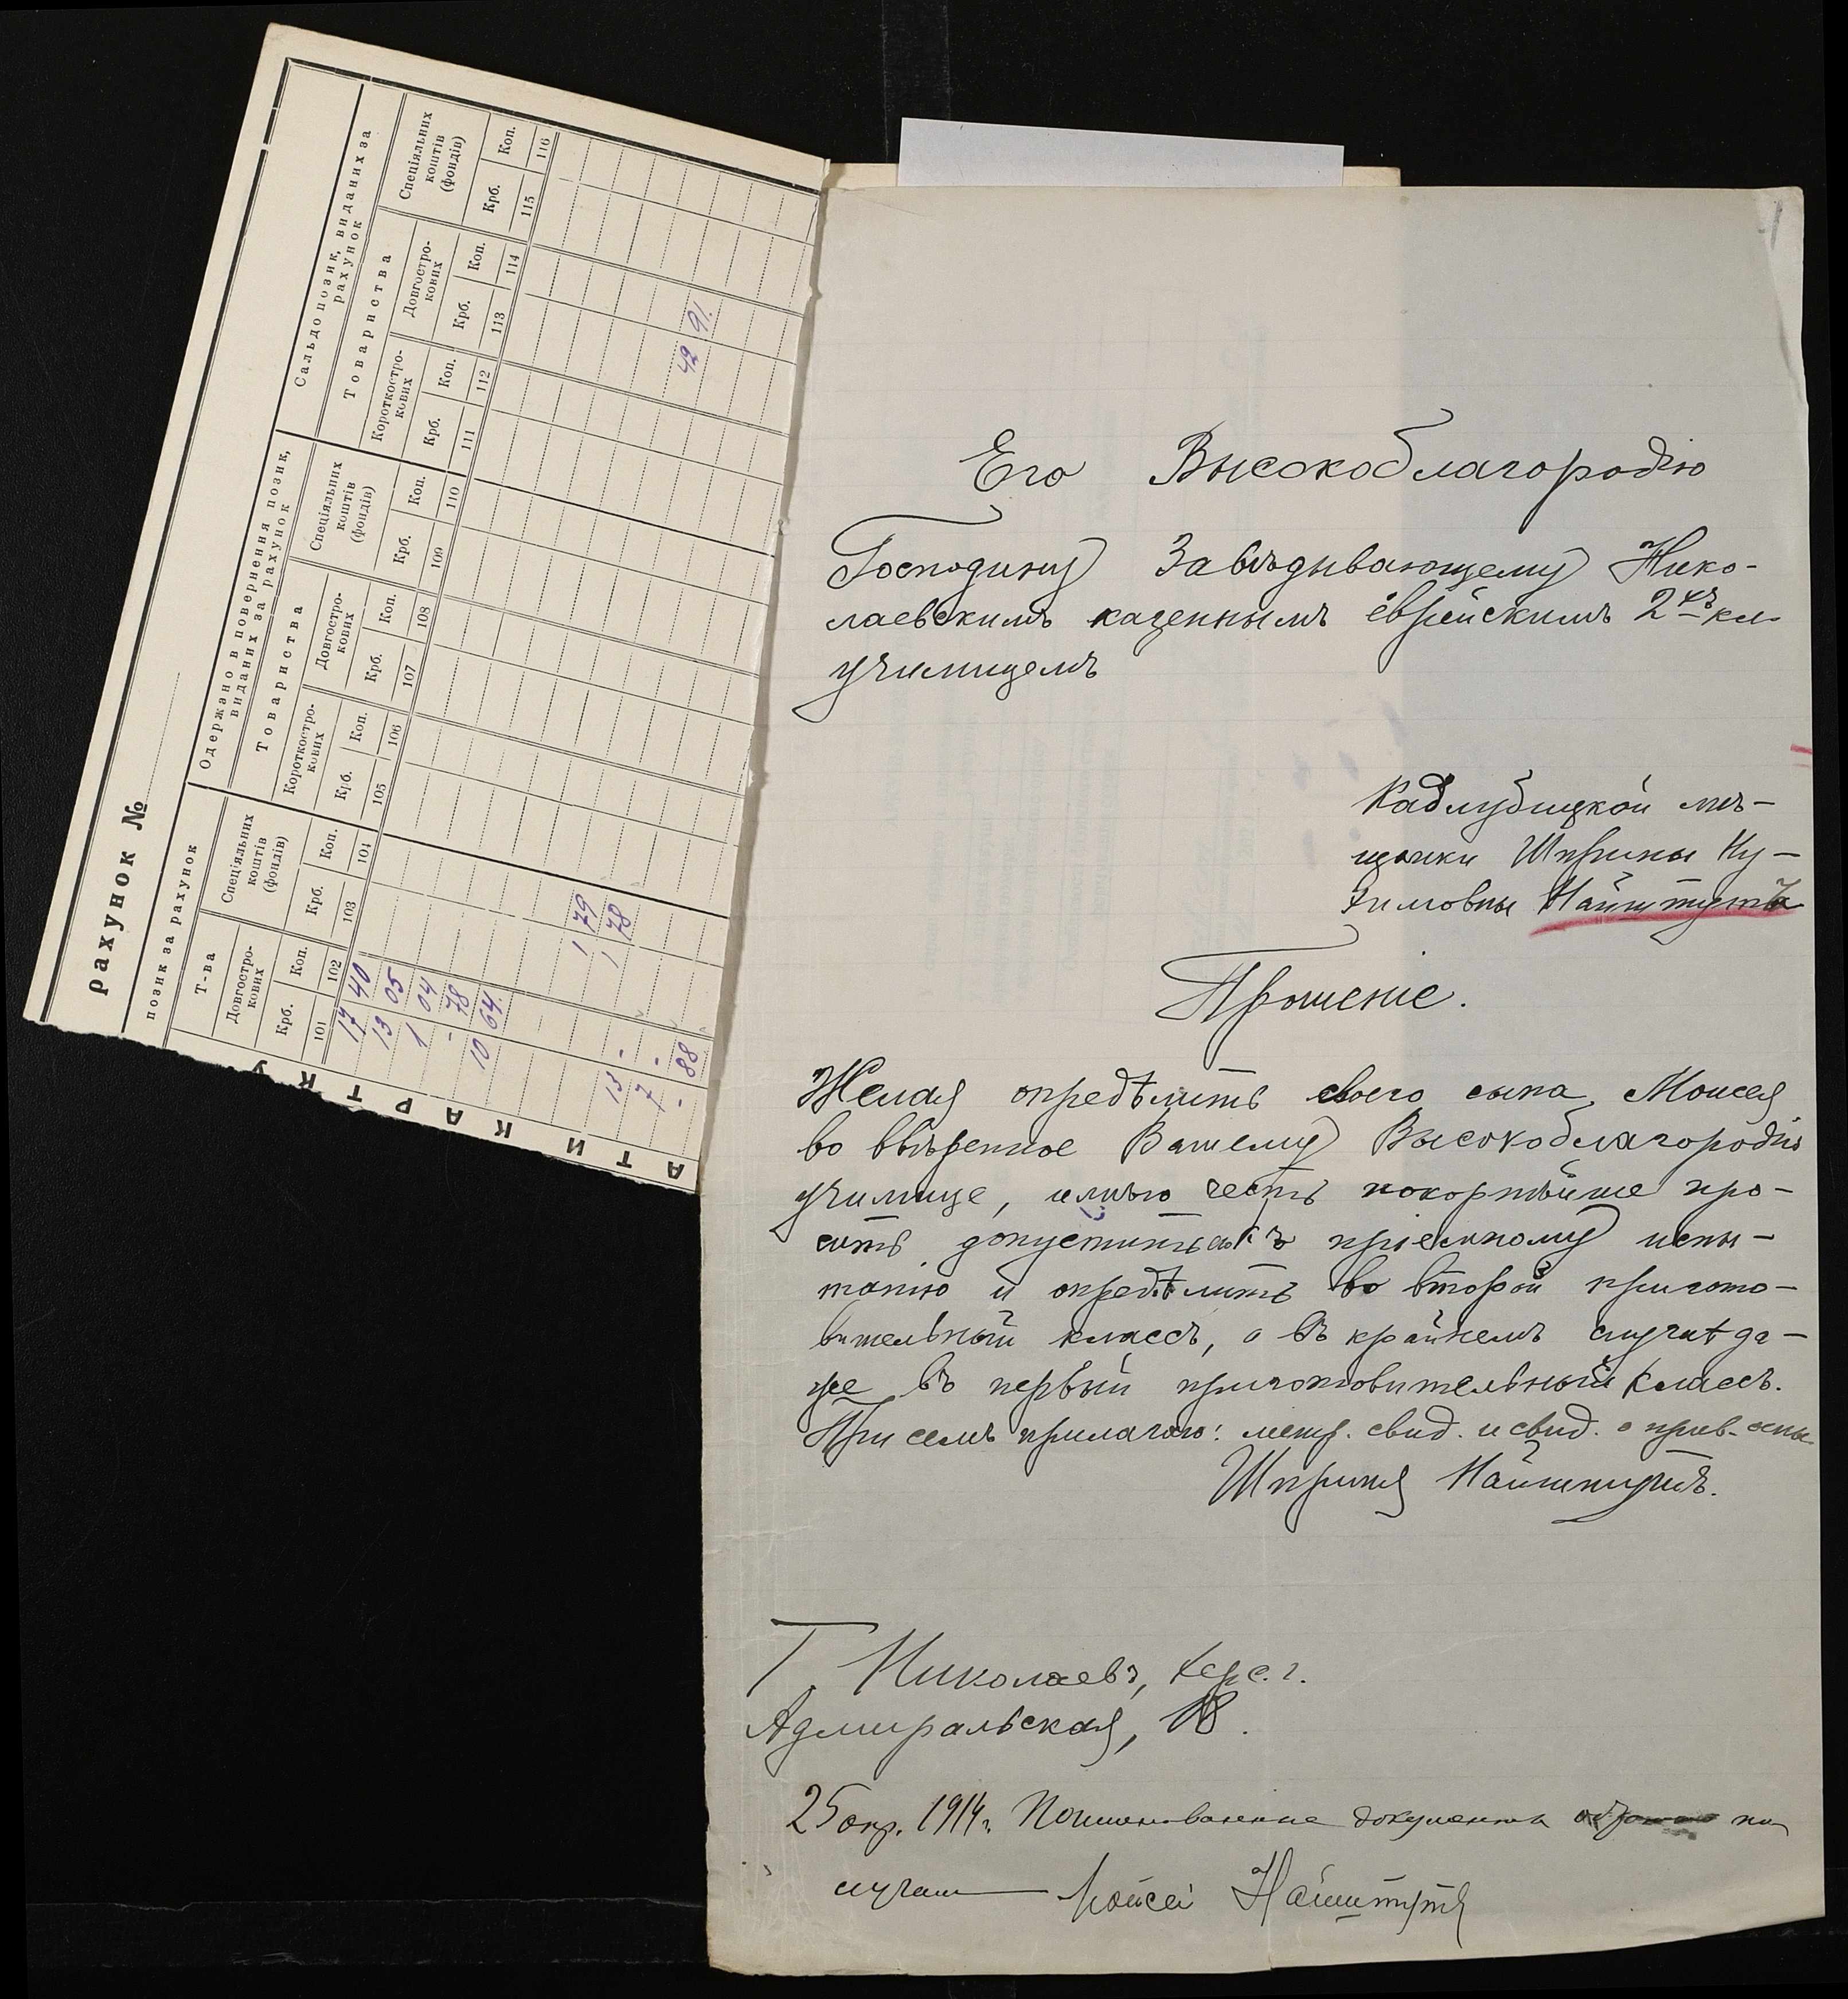 рахунок №
позик за рахунок
Т-ва
Довгостро-
кових
Крб. Коп.
101 102
Спеціяльних
коштів
(фондів)
Крб. Коп.
103 104
Одержано в повернення позик,
виданих за рахунок
Товариства
Короткостро-
кових
Крб. Коп.
105 106
Довгостро-
кових
Крб. Коп.
107 108
Спеціяльних
коштів
(фондів)
Крб. Коп.
109 110
Сальдо позик, виданих за
рахунок
Товариства
Короткостро-
кових
Крб. Коп.
111 112
Довгостро-
кових
Крб. Коп.
113 114
Спеціяльних
коштів
(фондів)
Крб. Коп.
115 116
17 40
13 05
1 04
- 78
10 64
1 79
13 - 1 78
7 - 42 91
- 88
АТИ КАРТКУ
1
Его Высокоблагородію
Господину Завѣдывающему Нико-
лаевскимъ казеннымъ еврейскимъ 2хъ кл.
училищемъ
Кадлубицкой мѣ-
щанки Шприны Ну-
химовны Найштутъ
Прошеніе.
Желая опредѣлить своего сына Моисея
во ввѣренное Вашему Высокоблагородію
училище, имѣю честь покорнѣйше про-
сить допустить къ пріемному испы-
танію и опредѣлить во второй пригото-
вительный классъ, а въ крайнемъ случаѣ да-
же въ первый приготовительный классъ.
При семъ прилагаю: метр. свид. и свид. о прив. оспы
Шприня Найштутъ.
Г. Николаевъ, Херс. г.
Адмиральская, 18.
25 апр. 1914 г. Поименованные документы обратно по
лучил Мойсей Найштутъ